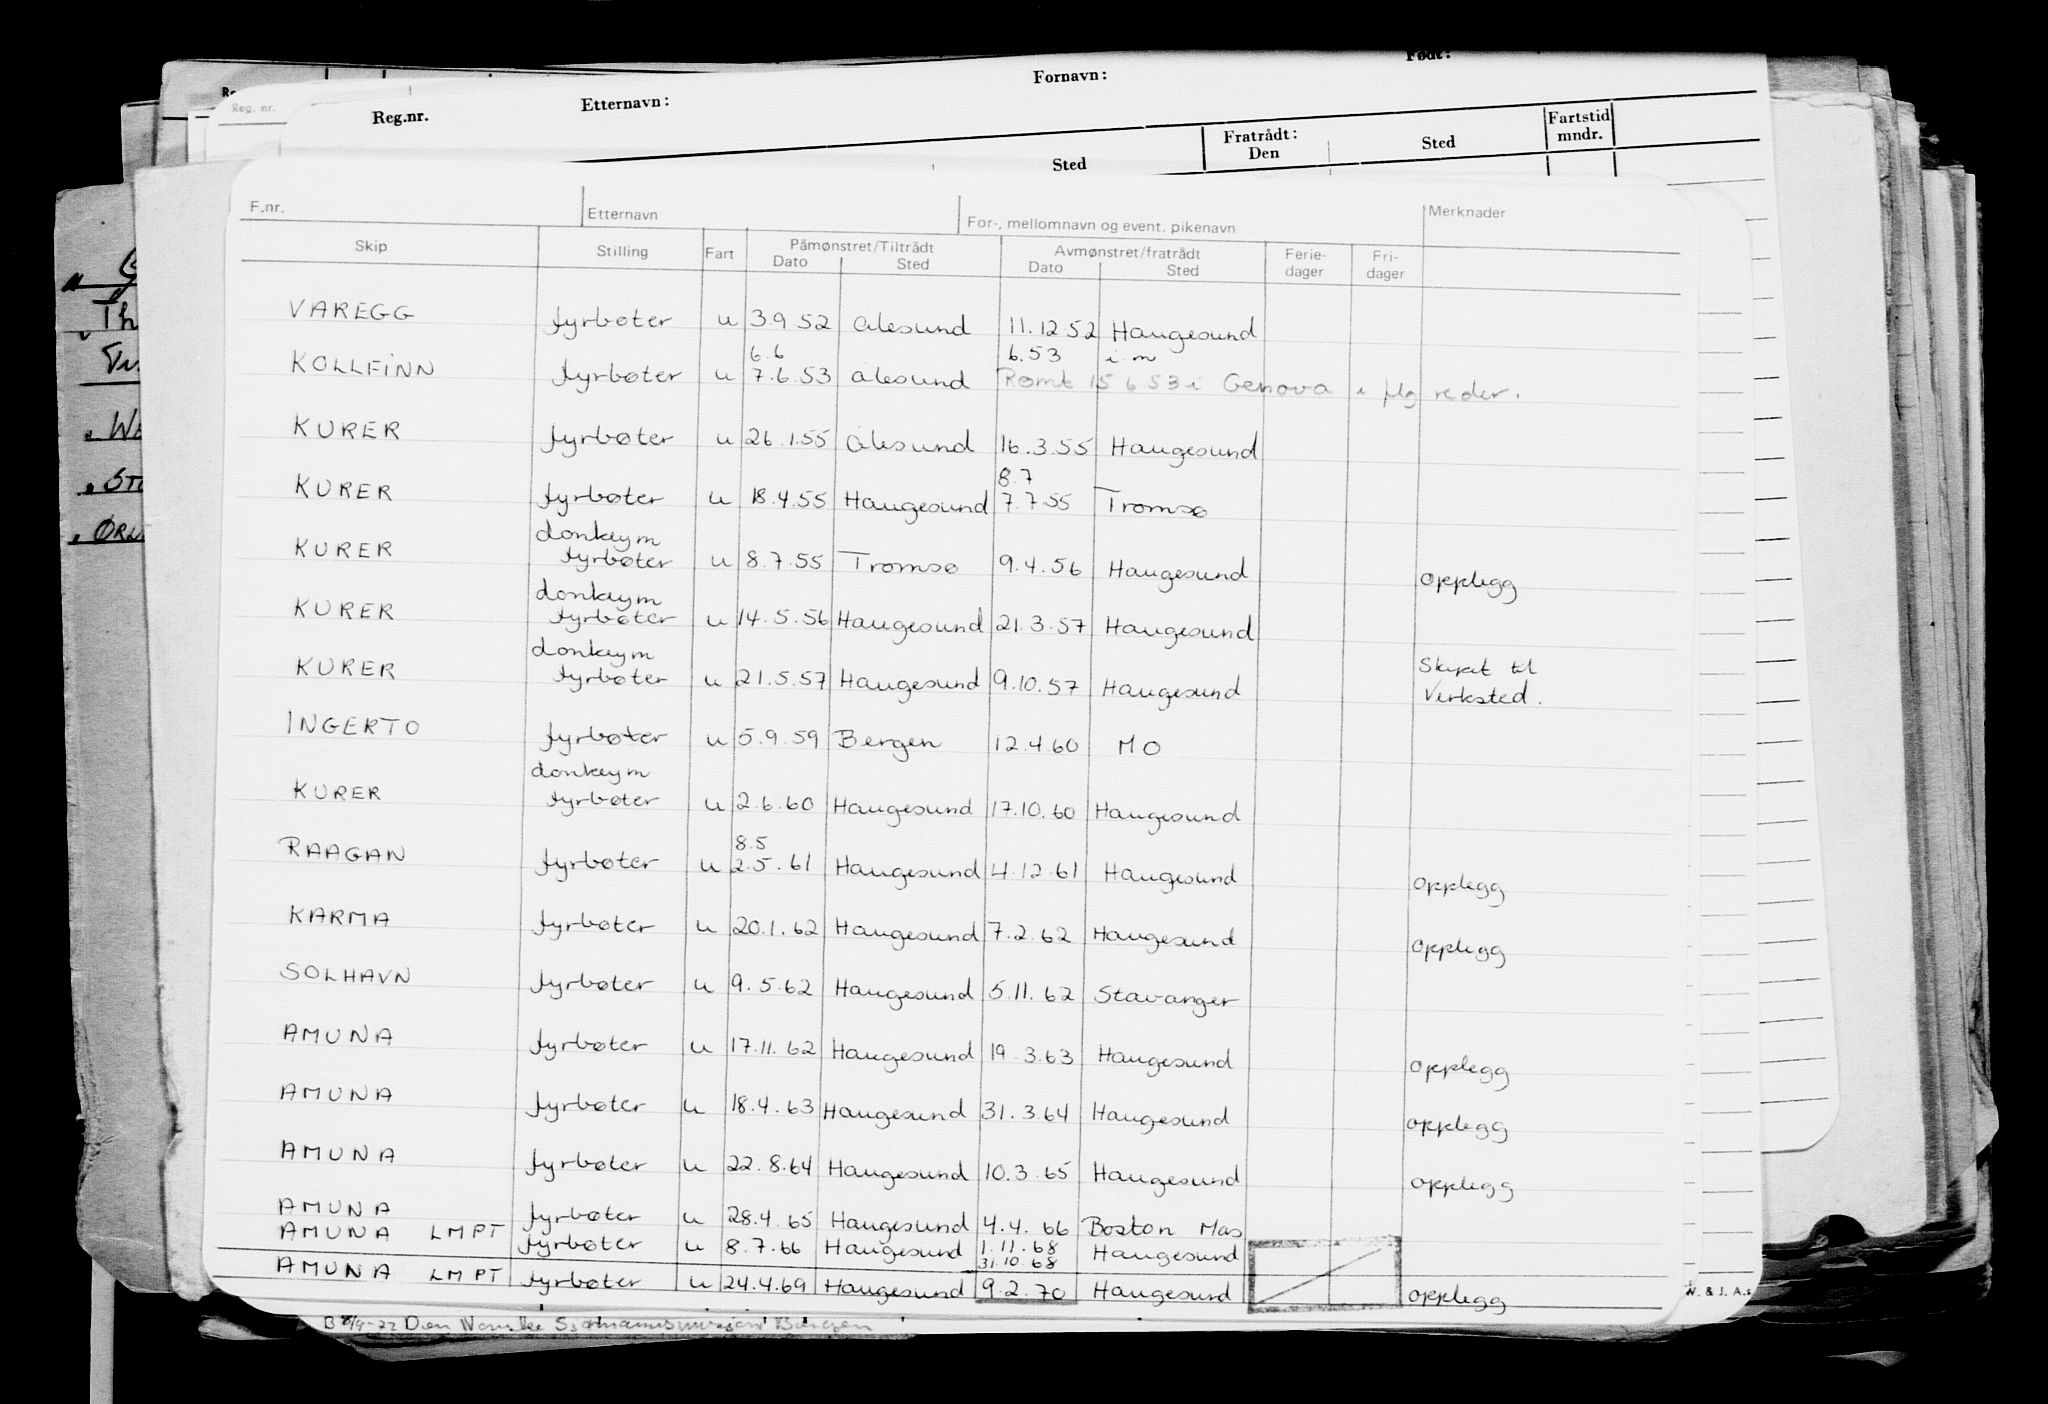 Født:
Fornavn:
Etternavn:
Reg.nr.
Reg. nr.
Fratrådt: Den
Sted
Fartstid mndr.
Sted
F.nr. Etternavn For-, mellomnavn og event. pikenavn Merknader
Skip Stilling Fart Påmønstret/Tiltrådt Avmønstret/fratrådt Ferie- Fri-
Dato Sted Dato Sted dager dager
VAREGG fyrbøter u 3.9.52 Ålesund 11.12.52 Haugesund
6.6 6.53 i.m
KOLLFINN fyrbøter u 7.6.53 Ålesund Rømt 15.6.53 i Genova i flg reder.
KURER fyrbøter u 26.1.55 Ålesund 16.3.55 Haugesund
8.7
KURER fyrbøter u 18.4.55 Haugesund 7.7.55 Tromsø
donkeym
KURER fyrbøter u 8.7.55 Tromsø 9.4.56 Haugesund opplegg
donkeym
KURER fyrbøter u 14.5.56 Haugesund 21.3.57 Haugesund
donkeym Skipet til
KURER fyrbøter u 21.5.57 Haugesund 9.10.57 Haugesund Verksted.
INGERTO fyrbøter u 5.9.59 Bergen 12.4.60 MO
donkeym
KURER fyrbøter u 2.6.60 Haugesund 17.10.60 Haugesund
8.5
RAAGAN fyrbøter u 2.5.61 Haugesund 4.12.61 Haugesund opplegg
KARMA fyrbøter u 20.1.62 Haugesund 7.2.62 Haugesund opplegg
SOLHAVN fyrbøter u 9.5.62 Haugesund 5.11.62 Stavanger
AMUNA fyrbøter u 17.11.62 Haugesund 19.3.63 Haugesund opplegg
AMUNA fyrbøter u 18.4.63 Haugesund 31.3.64 Haugesund opplegg
AMUNA fyrbøter u 22.8.64 Haugesund 10.3.65 Haugesund opplegg
AMUNA fyrbøter u 28.4.65 Haugesund 4.4.66 Boston Mas
AMUNA LMPT fyrbøter u 8.7.66 Haugesund 1.11.68 Haugesund
31.10.68
AMUNA LMPT fyrbøter u 24.4.69 Haugesund 9.2.70 Haugesund opplegg
W. & J. A.s
Den Norske Sjømannsmisjon Bergen